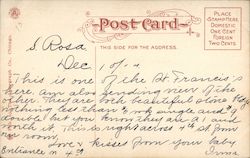 PLACE
STAMP HERE
DOMESTIC
ONE CENT
FOREIGN
TWO CENTS
Post Card
THIS SIDE FOR THE ADDRESS.
S. Rosa
Dec 1
This is one of the St Francis
here. am also sending view of the
other. They are both beautiful places
nothing less than single and
double but you know they are a1 and
worth it. This is right across 4th st. from
room.
Love & kisses from your baby
Entrance on 4th Irma